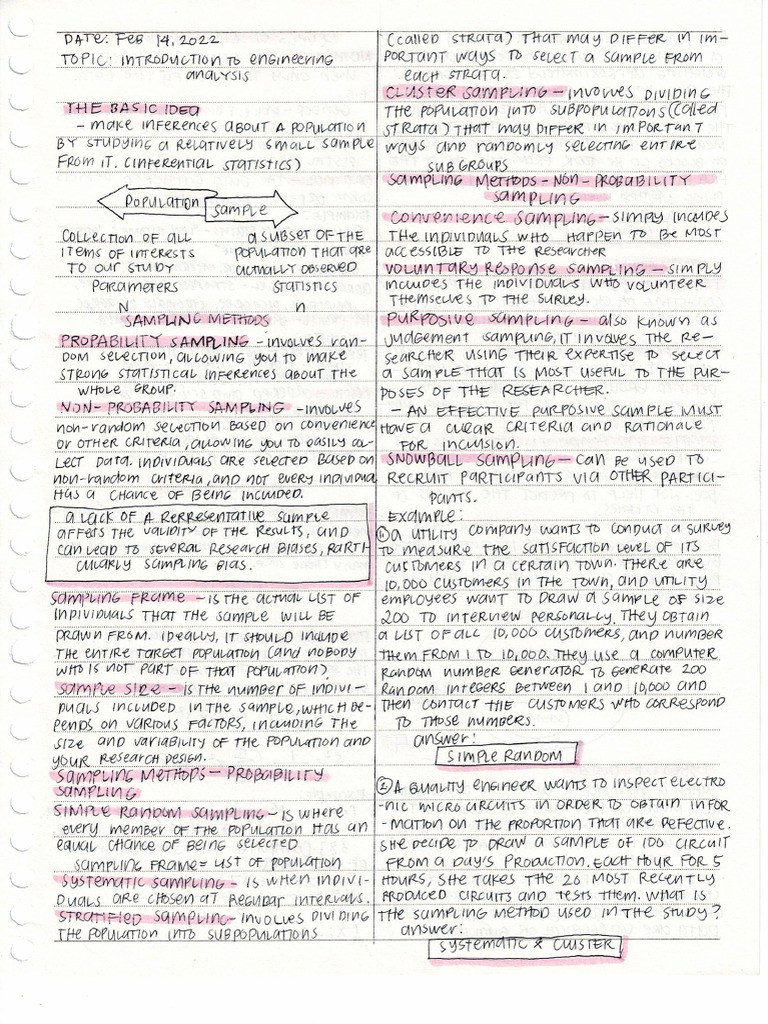 DATE: FEB 14, 2022
TOPIC: INTRODUCTION TO ENGINEERING
ANALYSIS
THE BASIC IDEA
- MAKE INFERENCES ABOUT A POPULATION
BY STUDYING A RELATIVELY SMALL SAMPLE
FROM IT. (INFERENTIAL STATISTICS)
POPULATION
SAMPLE
COLLECTION OF ALL
ITEMS OF INTERESTS
TO OUR STUDY
PARAMETERS
N
A SUBSET OF THE
POPULATION THAT ARE
ACTUALLY OBSERVED
STATISTICS
n
SAMPLING METHODS
PROPABILITY SAMPLING - INVOLVES RAN-
DOM SELECTION, ALLOWING YOU TO MAKE
STRONG STATISTICAL INFERENCES ABOUT THE
WHOLE GROUP.
NON-PROBABILITY SAMPLING - INVOLVES
NON-RANDOM SELECTION BASED ON CONVENIENCE
OR OTHER CRITERIA, ALLOWING YOU TO EASILY COL-
LECT DATA. INDIVIDUALS ARE SELECTED BASED ON
NON-RANDOM CRITERIA, AND NOT EVERY INDIVIDUAL
HAS A CHANCE OF BEING INCLUDED.
A LACK OF A REPRESENTATIVE SAMPLE
AFFECTS THE VALIDITY OF THE RESULTS, AND
CAN LEAD TO SEVERAL RESEARCH BIASES, PARTI
CULARLY SAMPLING BIAS.
SAMPLING FRAME - IS THE ACTUAL LIST OF
INDIVIDUALS THAT THE SAMPLE WILL BE
DRAWN FROM. IDEALLY, IT SHOULD INCLUDE
THE ENTIRE TARGET POPULATION (AND NOBODY
WHO IS NOT PART OF THAT POPULATION).
SAMPLE SIZE - IS THE NUMBER OF INDIVI-
DUALS INCLUDED IN THE SAMPLE, WHICH DE-
PENDS ON VARIOUS FACTORS, INCLUDING THE
SIZE AND VARIABILITY OF THE POPULATION AND
YOUR RESEARCH DESIGN.
SAMPLING METHODS - PROBABILITY
SAMPLING
SIMPLE RANDOM SAMPLING - IS WHERE
EVERY MEMBER OF THE POPULATION HAS AN
EQUAL CHANCE OF BEING SELECTED
SAMPLING FRAME = LIST OF POPULATION
SYSTEMATIC SAMPLING - IS WHEN INDIVI-
DUALS ARE CHOSEN AT REGULAR INTERVALS.
STRATIFIED SAMPLING - INVOLVES DIVIDING
THE POPULATION INTO SUBPOPULATIONS
(CALLED STRATA) THAT MAY DIFFER IN IM-
PORTANT WAYS TO SELECT A SAMPLE FROM
EACH STRATA.
CLUSTER SAMPLING - INVOLVES DIVIDING
THE POPULATION INTO SUBPOPULATIONS (CALLED
STRATA) THAT MAY DIFFER IN IMPORTANT
WAYS AND RANDOMLY SELECTING ENTIRE
SUBGROUPS
SAMPLING METHODS - NON-PROBABILITY
SAMPLING
CONVENIENCE SAMPLING - SIMPLY INCLUDES
THE INDIVIDUALS WHO HAPPEN TO BE MOST
ACCESSIBLE TO THE RESEARCHER
VOLUNTARY RESPONSE SAMPLING - SIMPLY
INCLUDES THE INDIVIDUALS WHO VOLUNTEER
THEMSELVES TO THE SURVEY.
PURPOSIVE SAMPLING - ALSO KNOWN AS
JUDGEMENT SAMPLING, IT INVOLVES THE RE-
SEARCHER USING THEIR EXPERTISE TO SELECT
A SAMPLE THAT IS MOST USEFUL TO THE PUR-
POSES OF THE RESEARCHER.
- AN EFFECTIVE PURPOSIVE SAMPLE MUST
HAVE A CLEAR CRITERIA AND RATIONALE
FOR INCLUSION.
SNOWBALL SAMPLING - CAN BE USED TO
RECRUIT PARTICIPANTS VIA OTHER PARTICI-
PANTS.
EXAMPLE:
① A UTILITY COMPANY WANTS TO CONDUCT A SURVEY
TO MEASURE THE SATISFACTION LEVEL OF ITS
CUSTOMERS IN A CERTAIN TOWN. THERE ARE
10,000 CUSTOMERS IN THE TOWN, AND UTILITY
EMPLOYEES WANT TO DRAW A SAMPLE OF SIZE
200 TO INTERVIEW PERSONALLY. THEY OBTAIN
A LIST OF ALL 10,000 CUSTOMERS, AND NUMBER
THEM FROM 1 TO 10,000. THEY USE A COMPUTER
RANDOM NUMBER GENERATOR TO GENERATE 200
RANDOM INTEGERS BETWEEN 1 AND 10,000 AND
THEN CONTACT THE CUSTOMERS WHO CORRESPOND
TO THOSE NUMBERS.
ANSWER:
SIMPLE RANDOM
② A QUALITY ENGINEER WANTS TO INSPECT ELECTRO
-NIC MICROCIRCUITS IN ORDER TO OBTAIN INFOR
-MATION ON THE PROPORTION THAT ARE DEFECTIVE.
SHE DECIDE TO DRAW A SAMPLE OF 100 CIRCUIT
FROM A DAY'S PRODUCTION. EACH HOUR FOR 5
HOURS, SHE TAKES THE 20 MOST RECENTLY
PRODUCED CIRCUITS AND TESTS THEM. WHAT IS
THE SAMPLING METHOD USED IN THE STUDY?
ANSWER:
SYSTEMATIC & CLUSTER